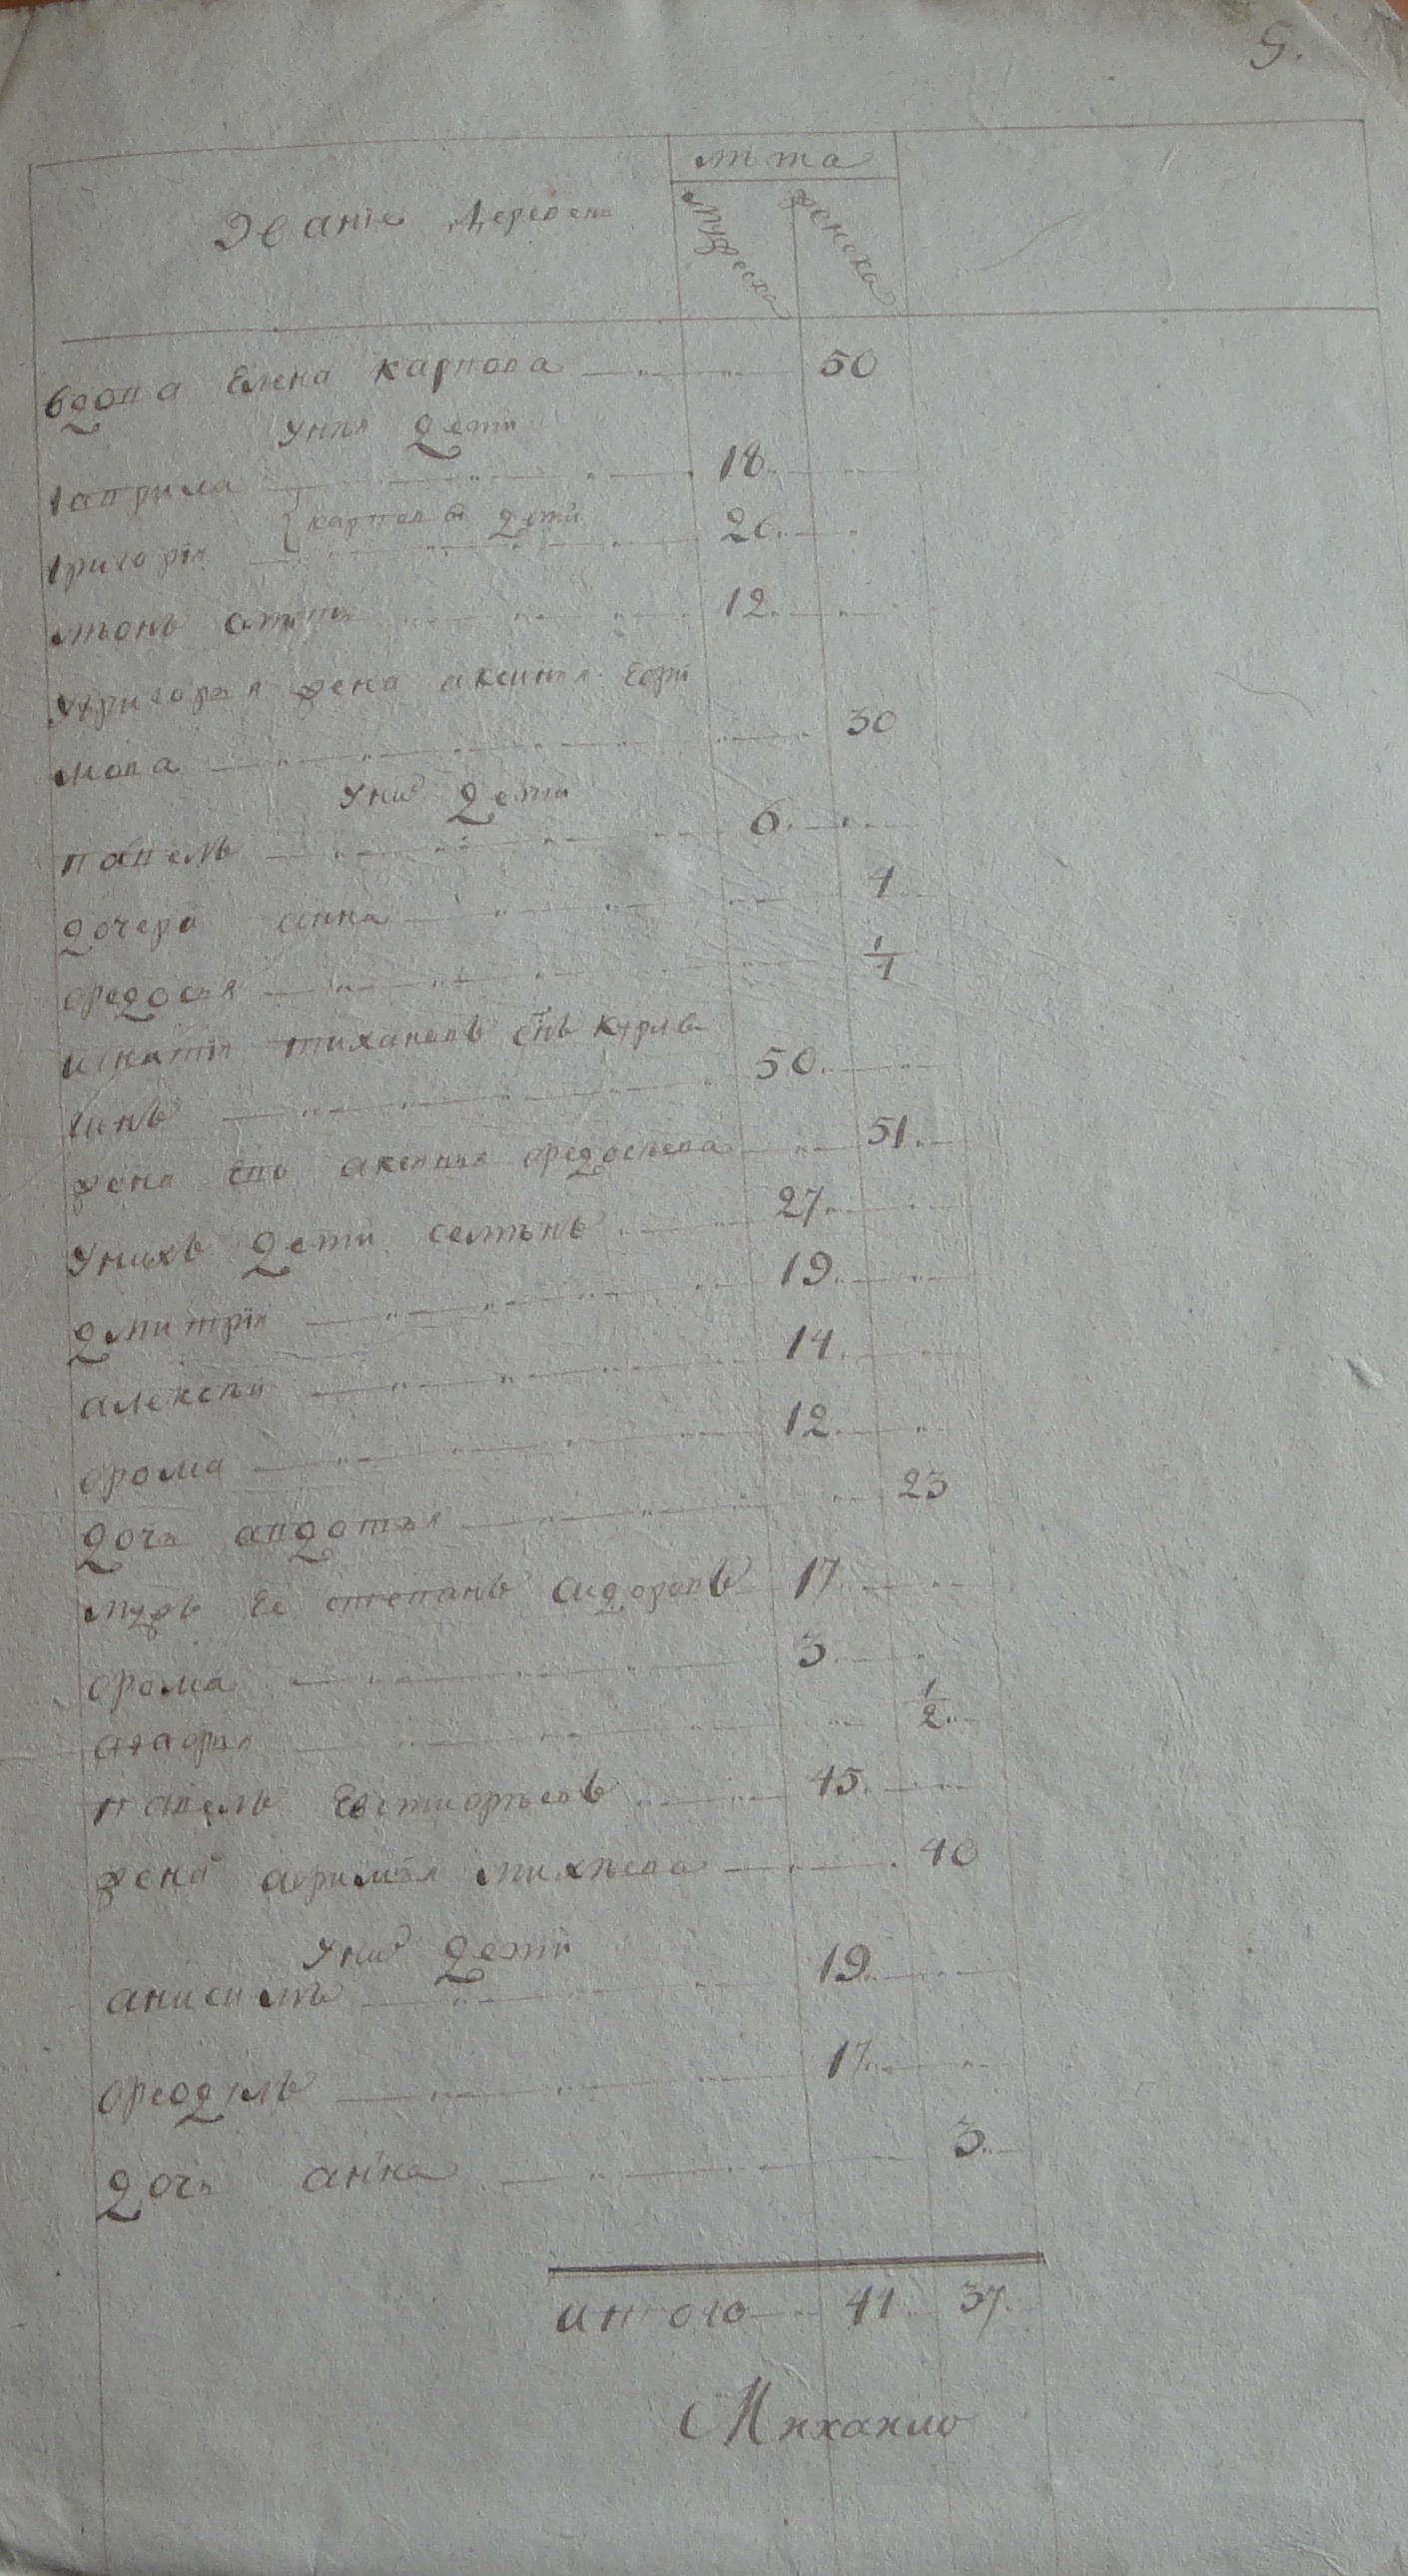 5.
лѣта
Званіе деревень
мужеска
женска
вдова Елена карпова 50
Унея дети
гаврила 18
{карповы дети
григорій 26
лѣонъ 12
Угригорья жена аксинья Ефи
мова 30
Уних дети
павелъ 6
дочери анна 4
федосья 1/4
игнатій тихановъ снъ Курлы
гинъ 50
жена Ево аксинья федосѣева 51
Унихъ дети семѣнъ 27
дмитрій 19
алексѣй 14
фома 12
дочь авдотья 23
мужъ Ее степанъ сидоровъ 17
фома 3
агафья 1/2
павелъ Евстифѣевъ 45
жена афимья михѣева 40
Уних дети
анисимъ 19
феодулъ 17
дочь анна 3
итого 41 37
Михаило